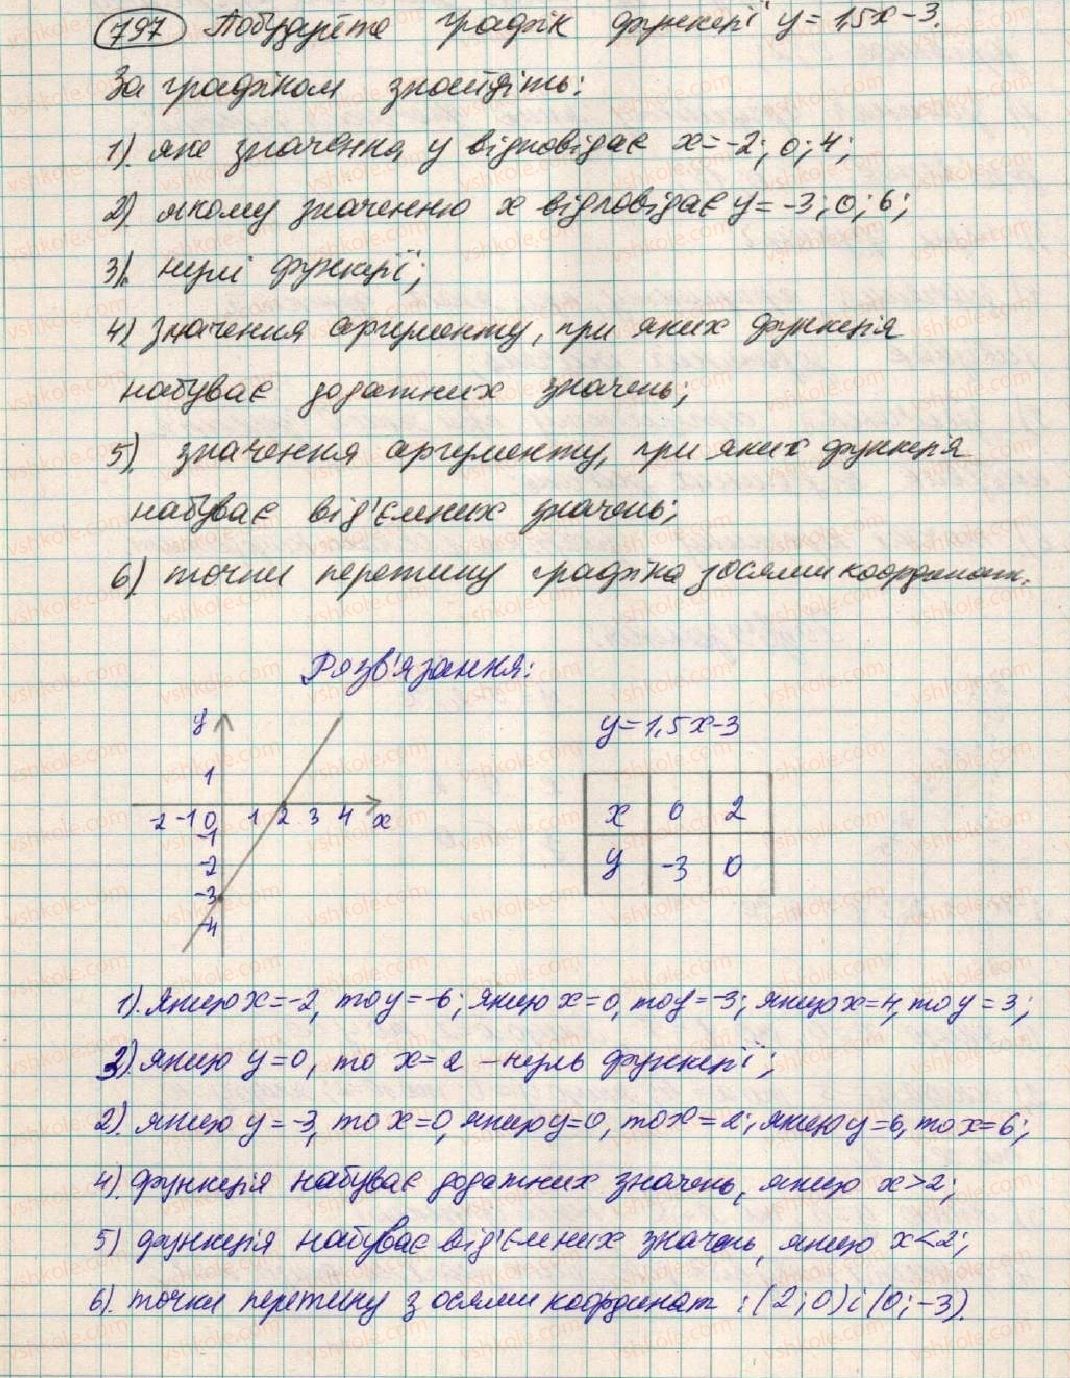 797 Побудуйте графік функції y=1,5x-3.
За графіком знайдіть:
1). яке значення y відповідає x=-2; 0; 4;
2). якому значенню x відповідає y=-3; 0; 6;
3). нулі функції;
4) значення аргументу, при яких функція
набуває додатних значень;
5). значення аргументу, при яких функція
набуває від'ємних значень;
6) точки перетину графіка з осями координат.
Розв'язання:
y
y=1,5x-3
1
x 0 2
-2 -1 0 1 2 3 4 x
-1
-2
y -3 0
-3
-4
1). якщо x=-2, то y=-6; якщо x=0, то y=-3; якщо x=4, то y=3;
3). якщо y=0, то x=2 - нуль функції;
2). якщо y=-3, то x=0, якщо y=0, то x=2; якщо y=6, то x=6;
4). функція набуває додатних значень, якщо x>2;
5) функція набуває від'ємних значень, якщо x<2;
6). точки перетину з осями координат: (2;0) і (0;-3).